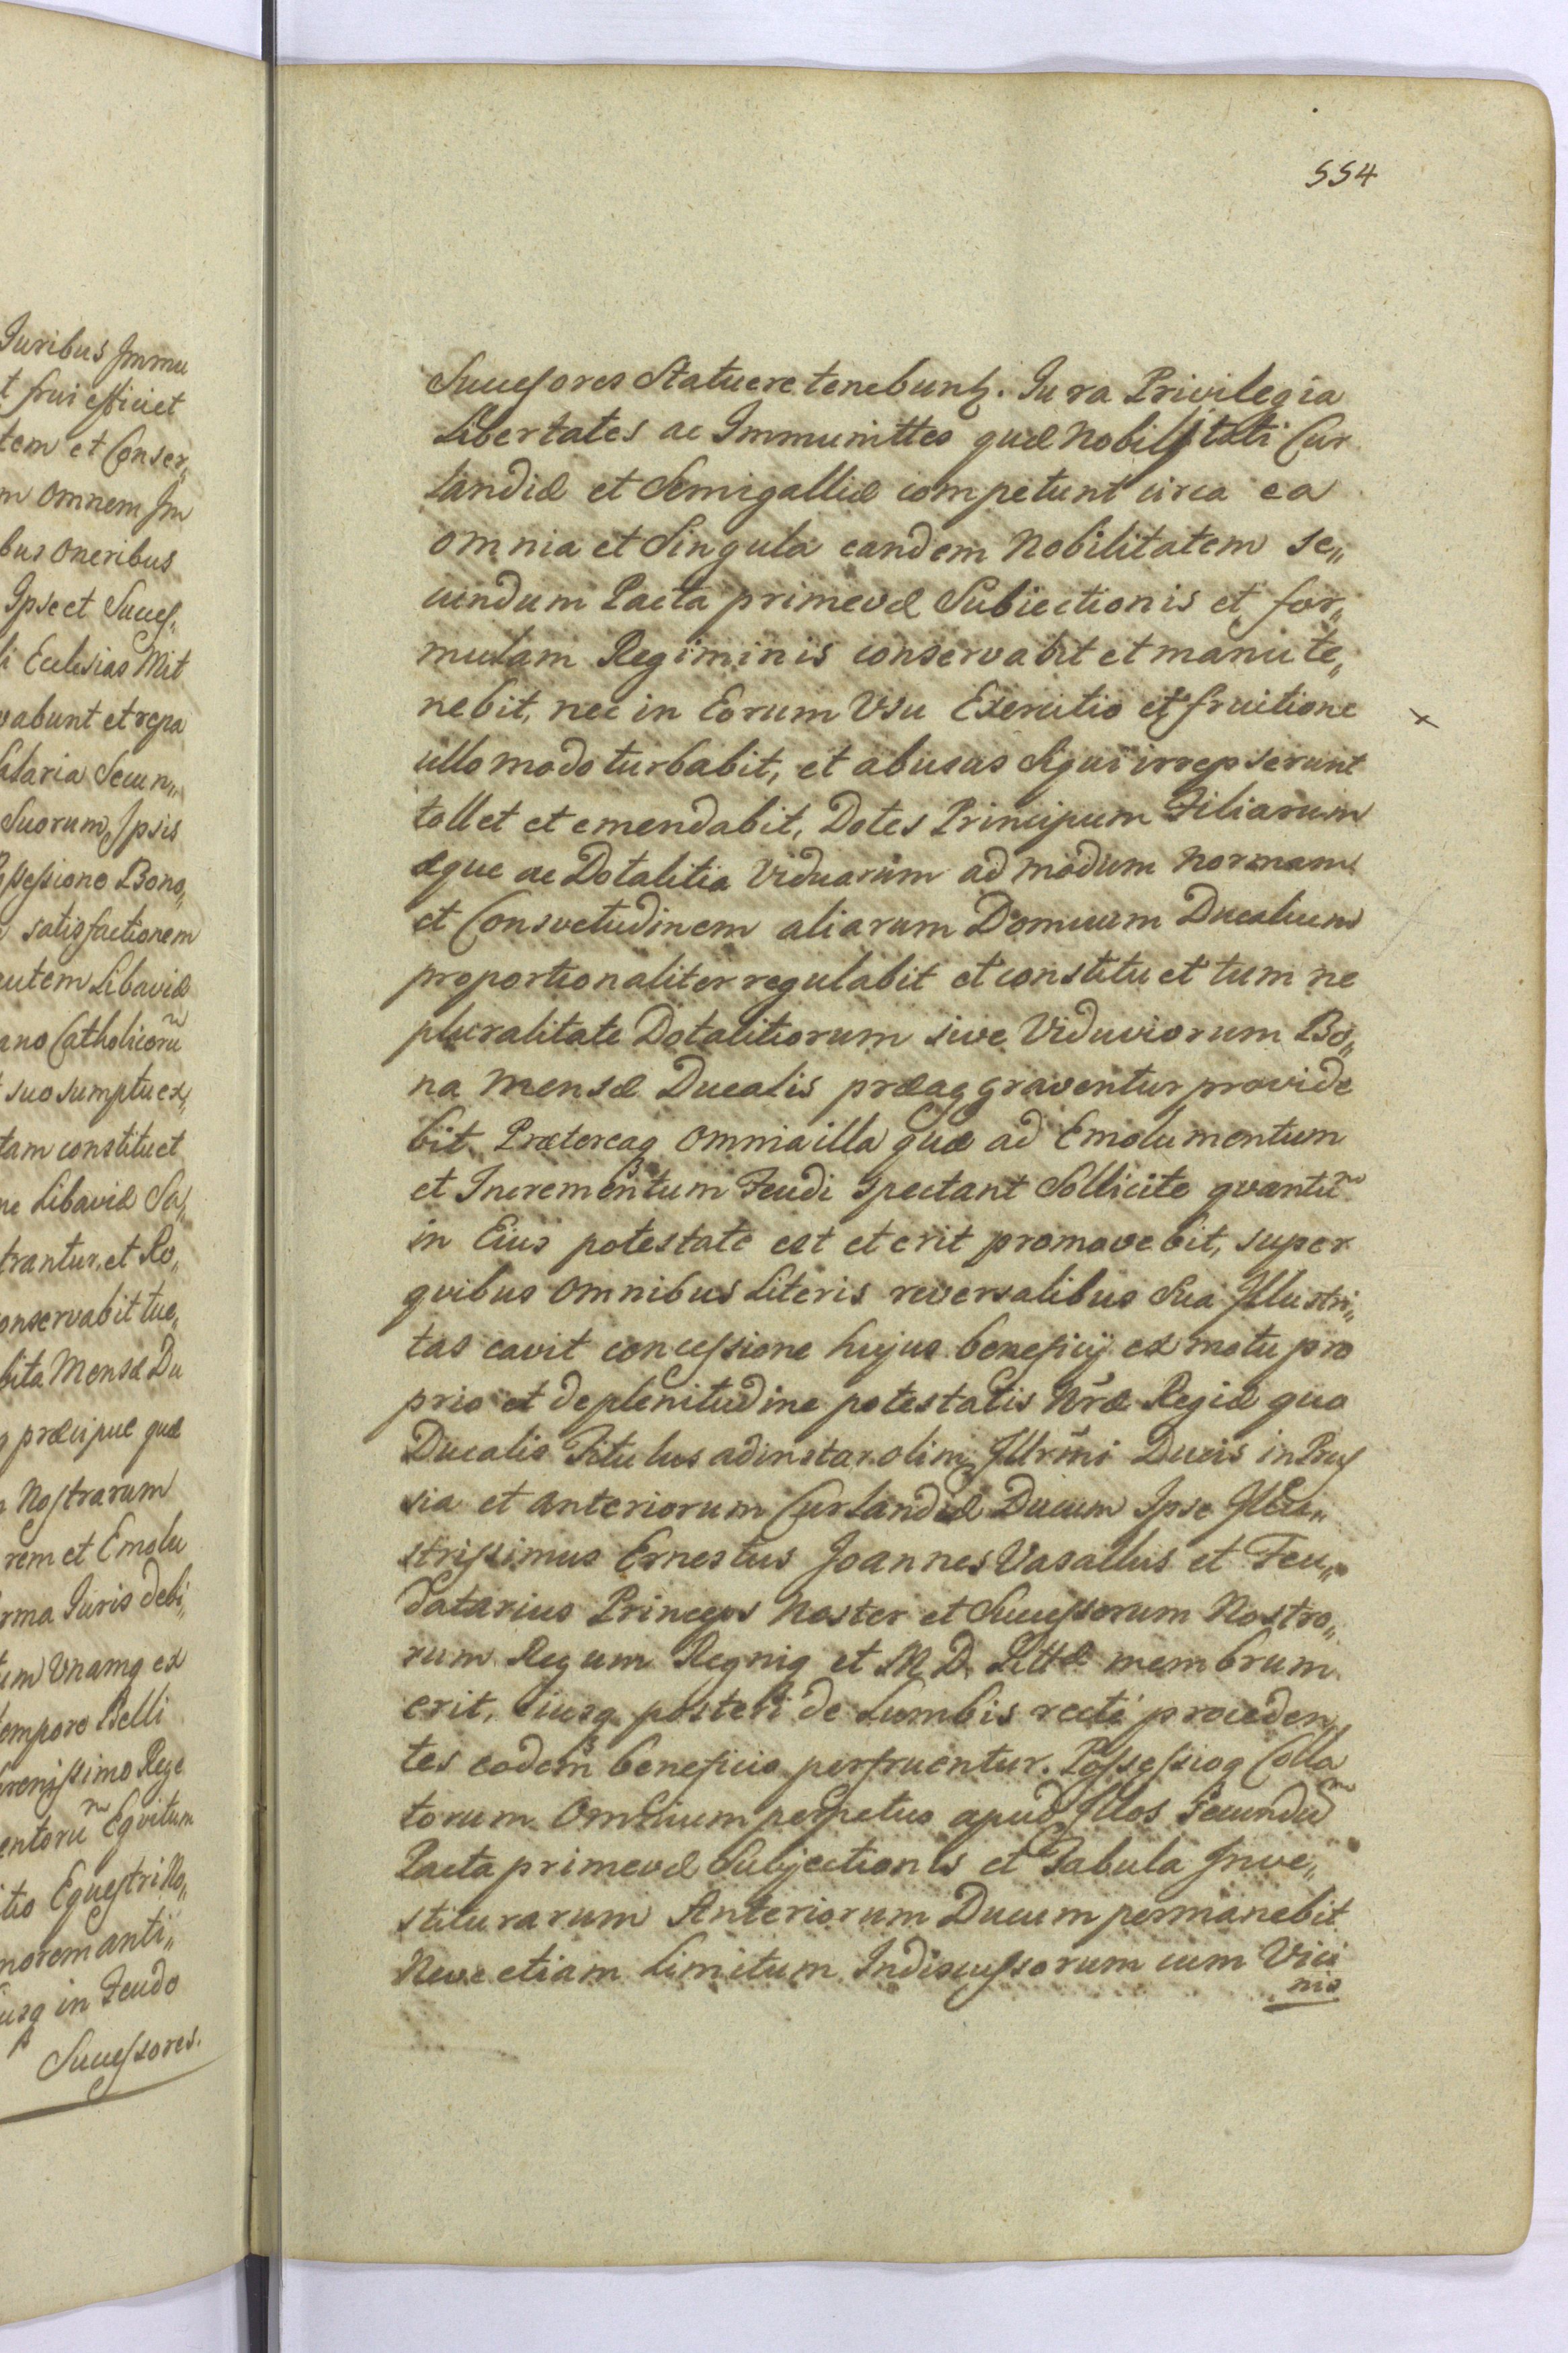 Juribus Immu
t frui efficiet
tem et Conser„
m omnem Im
bus oneribus
Ipse et Success„
li Ecclesias Mit
vabunt et repa
alaria Secun„
Suorum, Ipsis
ssessione Bono„
satisfactionem
autem Libaviæ
ano Catholicorũ
suo sumptu ex„
tam constituet
ne Libaviæ Sa„
trantur, et Ro„
onservabit tue„
bita Mensæ Du
præcipue quæ
Nostrarum
rem et Emolu
rma Juris debi„
um Unamq ex
tempore Belli
erenissimo Rege
entorũ Eqvitum
tio Equestri No„
norem anti„
usq in Feudo
Successores.
554
Successores Statuere tenebuntʒ. Jura Privilegia
Libertates ac Immunittes quæ Nobilitati Cur
landiæ et Semigalliæ competunt circa ea
omnia et Singula eandem Nobilitatem se„
cundum Pacta primevæ Subiectionis et for„
mulam Regiminis conservabit et manute„
nebit, nec in Eorum Usu Exercitio et fruitione
ullo modo turbabit, et abusus siqui irrepserunt
tollet et emendabit, Dotes Principum Filiarum
æque ac Dotalitia Viduarum ad modum Normam
et Consvetudinem aliarum Domuum Ducalium
proportionaliter regulabit et constituet tum ne
pluralitate Dotalitiorum sive Viduviorum Bo„
na Mensæ Ducalis præaggraventur provide
bit. Prætereaq omnia illa quæ ad Emolumentum
et Incrementum Feudi spectant Sollicite qvantũ
in Eius potestate est et erit promovebit, super
qvibus omnibus Literis reversalibus Sua Illustri„
tas cavit concessione hujus beneficij ex motu pro
prio et de plenitudine potestatis Nræ Regiæ quo
Ducalis Titulus ad instar olim Illrmi Ducis in Prus
sia et anteriorum Curlandiæ Ducum Ipse Illu„
strissimus Ernestus Joannes Vasallus et Feu„
datarius Princeps Noster et Successorum Nostro„
rum Regum Regniq et M. D. Littæ membrum
erit, Eiusq posteri de Lumbis recte proceden
tes eodem beneficio perfruentur. Possessioq Colla
torum Omnium perpetuo apud Illos Secundũ
Pacta primevæ Subjectionis et Tabula Inve„
stiturarum Anteriorum Ducum permanebit
Neve etiam Limitum Indiscussorum cum Vici
nis